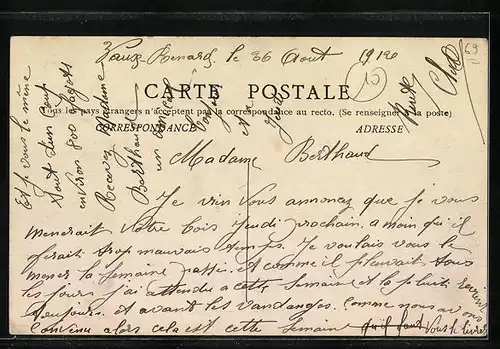 Vaux-Renard, le 26 Août 1912
CARTE POSTALE
Tous les pays étrangers n'acceptent pas la correspondance au recto. (Se renseigner à la poste)
CORRESPONDANCE
ADRESSE
Madame Berthaud
Je vien vous annoncez que je vous
menerait votre bois jeudi prochain, a moin qu'il
ferait trop mauvais temps. Je voulais vous le
mener la semaine passé. et comme il pleuvait tous
les jours j'ai attendu a cette semaine et la pluit revient
toujours. et avant les vandanges. Comme nous avons
convenu alors cela est cette semaine qu'il faut vous le livrer
Et je vous le mène
tout d'un coup
environ 800 fagots
Recevez Madame
Berthaud
69